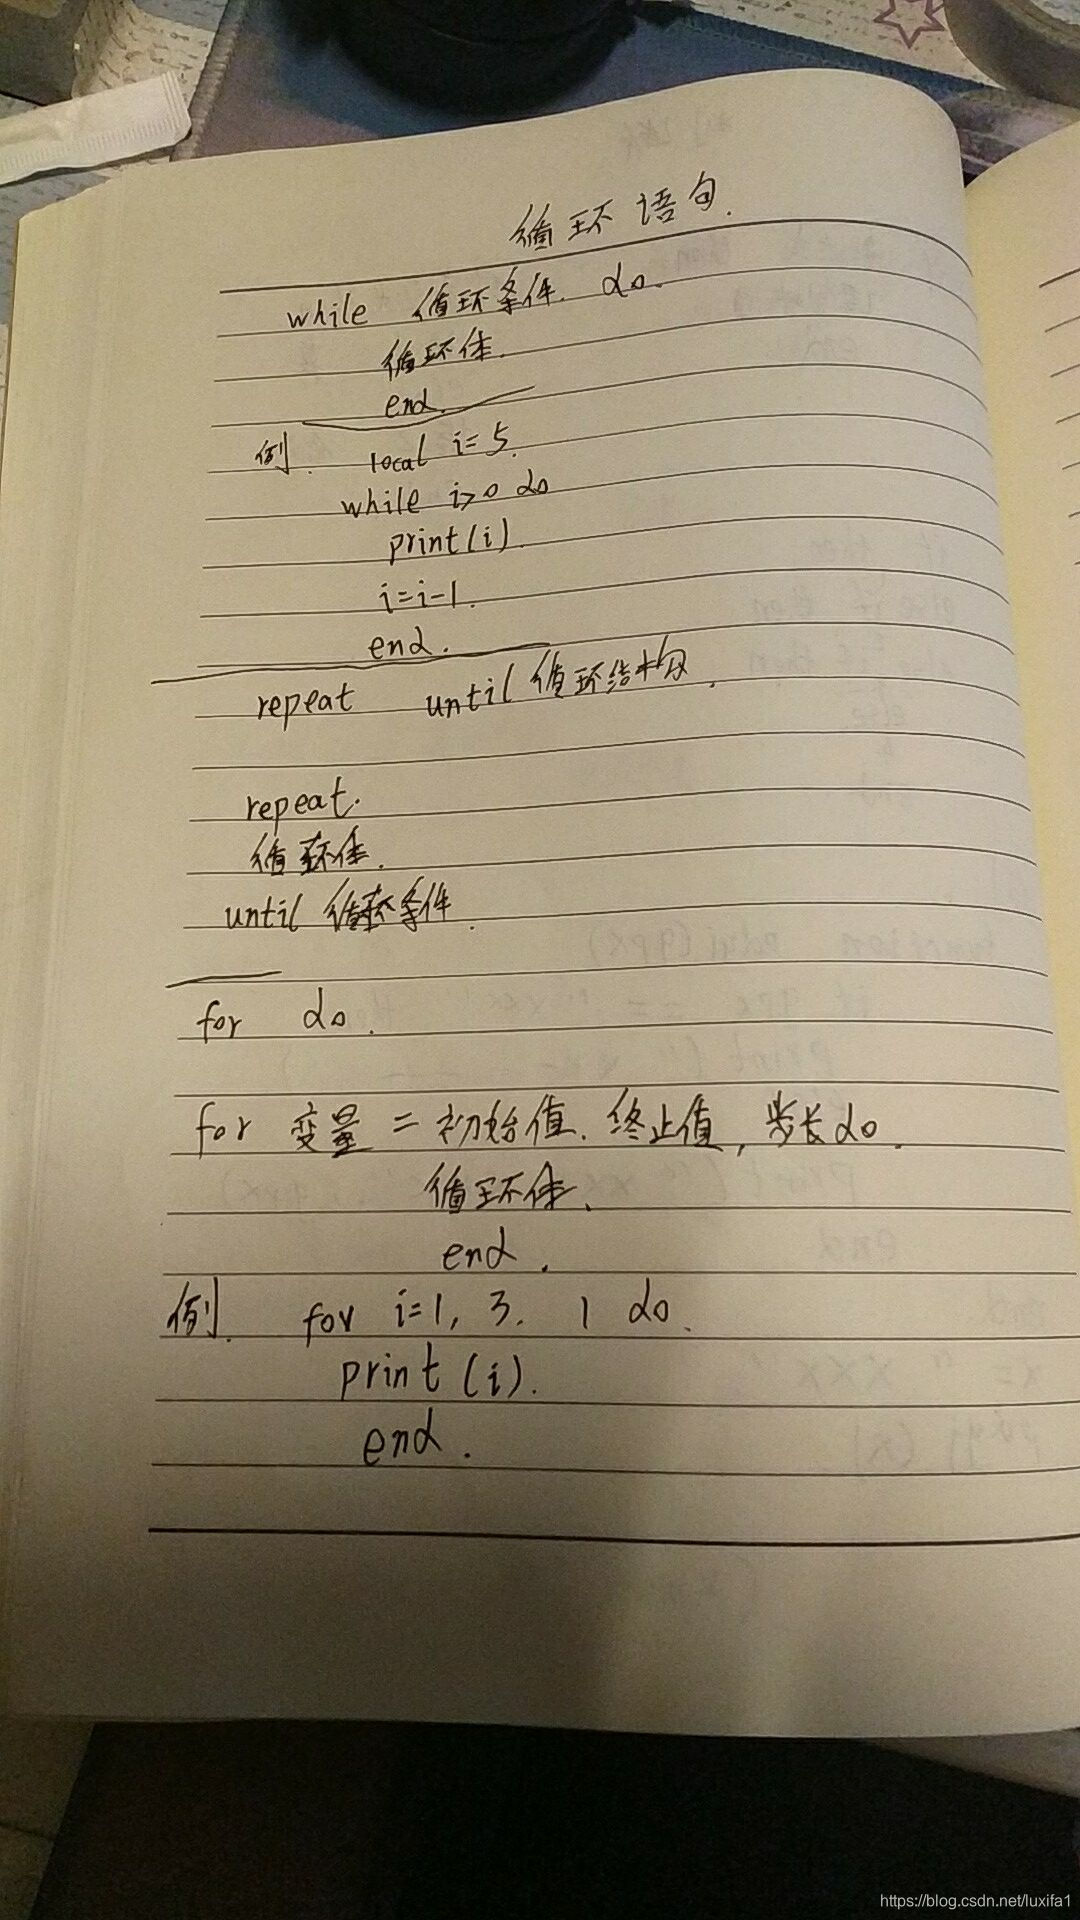 循环语句.
while 循环条件. do.
循环体.
end.
例. local i=5.
while i>0 do
print(i).
i=i-1.
end.
repeat until 循环结构.
repeat.
循环体.
until 循环条件.
for do.
for 变量=初始值.终止值,步长do.
循环体.
end.
例. for i=1, 3. 1 do.
print(i).
end.
https://blog.csdn.net/luxifa1